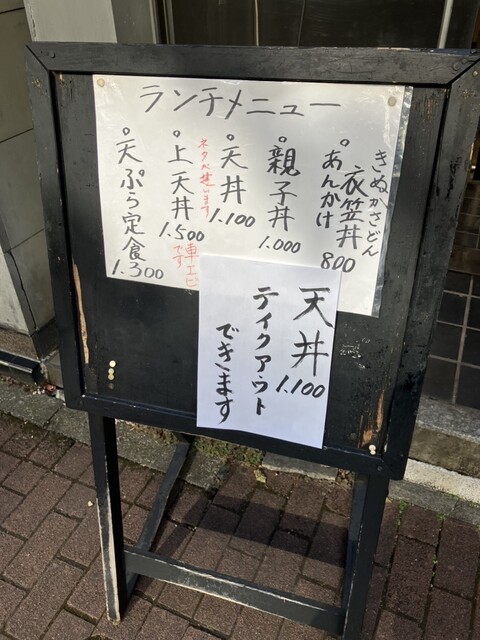 ランチメニュー
きぬかさどん
。衣笠丼 800
あんかけ
。親子丼 1.000
。天丼 1.100
。上天丼 1.500
車エビです
。天ぷら定食 1.300
天丼 1.100
テイクアウト
できます